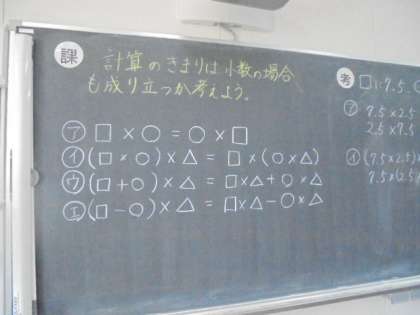 課 計算のきまりは小数の場合
も成り立つか考えよう。
㋐ □×○=○×□
㋑ (□×○)×△=□×(○×△)
㋒ (□+○)×△=□×△+○×△
㋓ (□-○)×△=□×△-○×△
考 □:7.5、
㋐ 7.5×2.5
2.5×7.5
㋑ (7.5×2.5)
7.5×(2.5